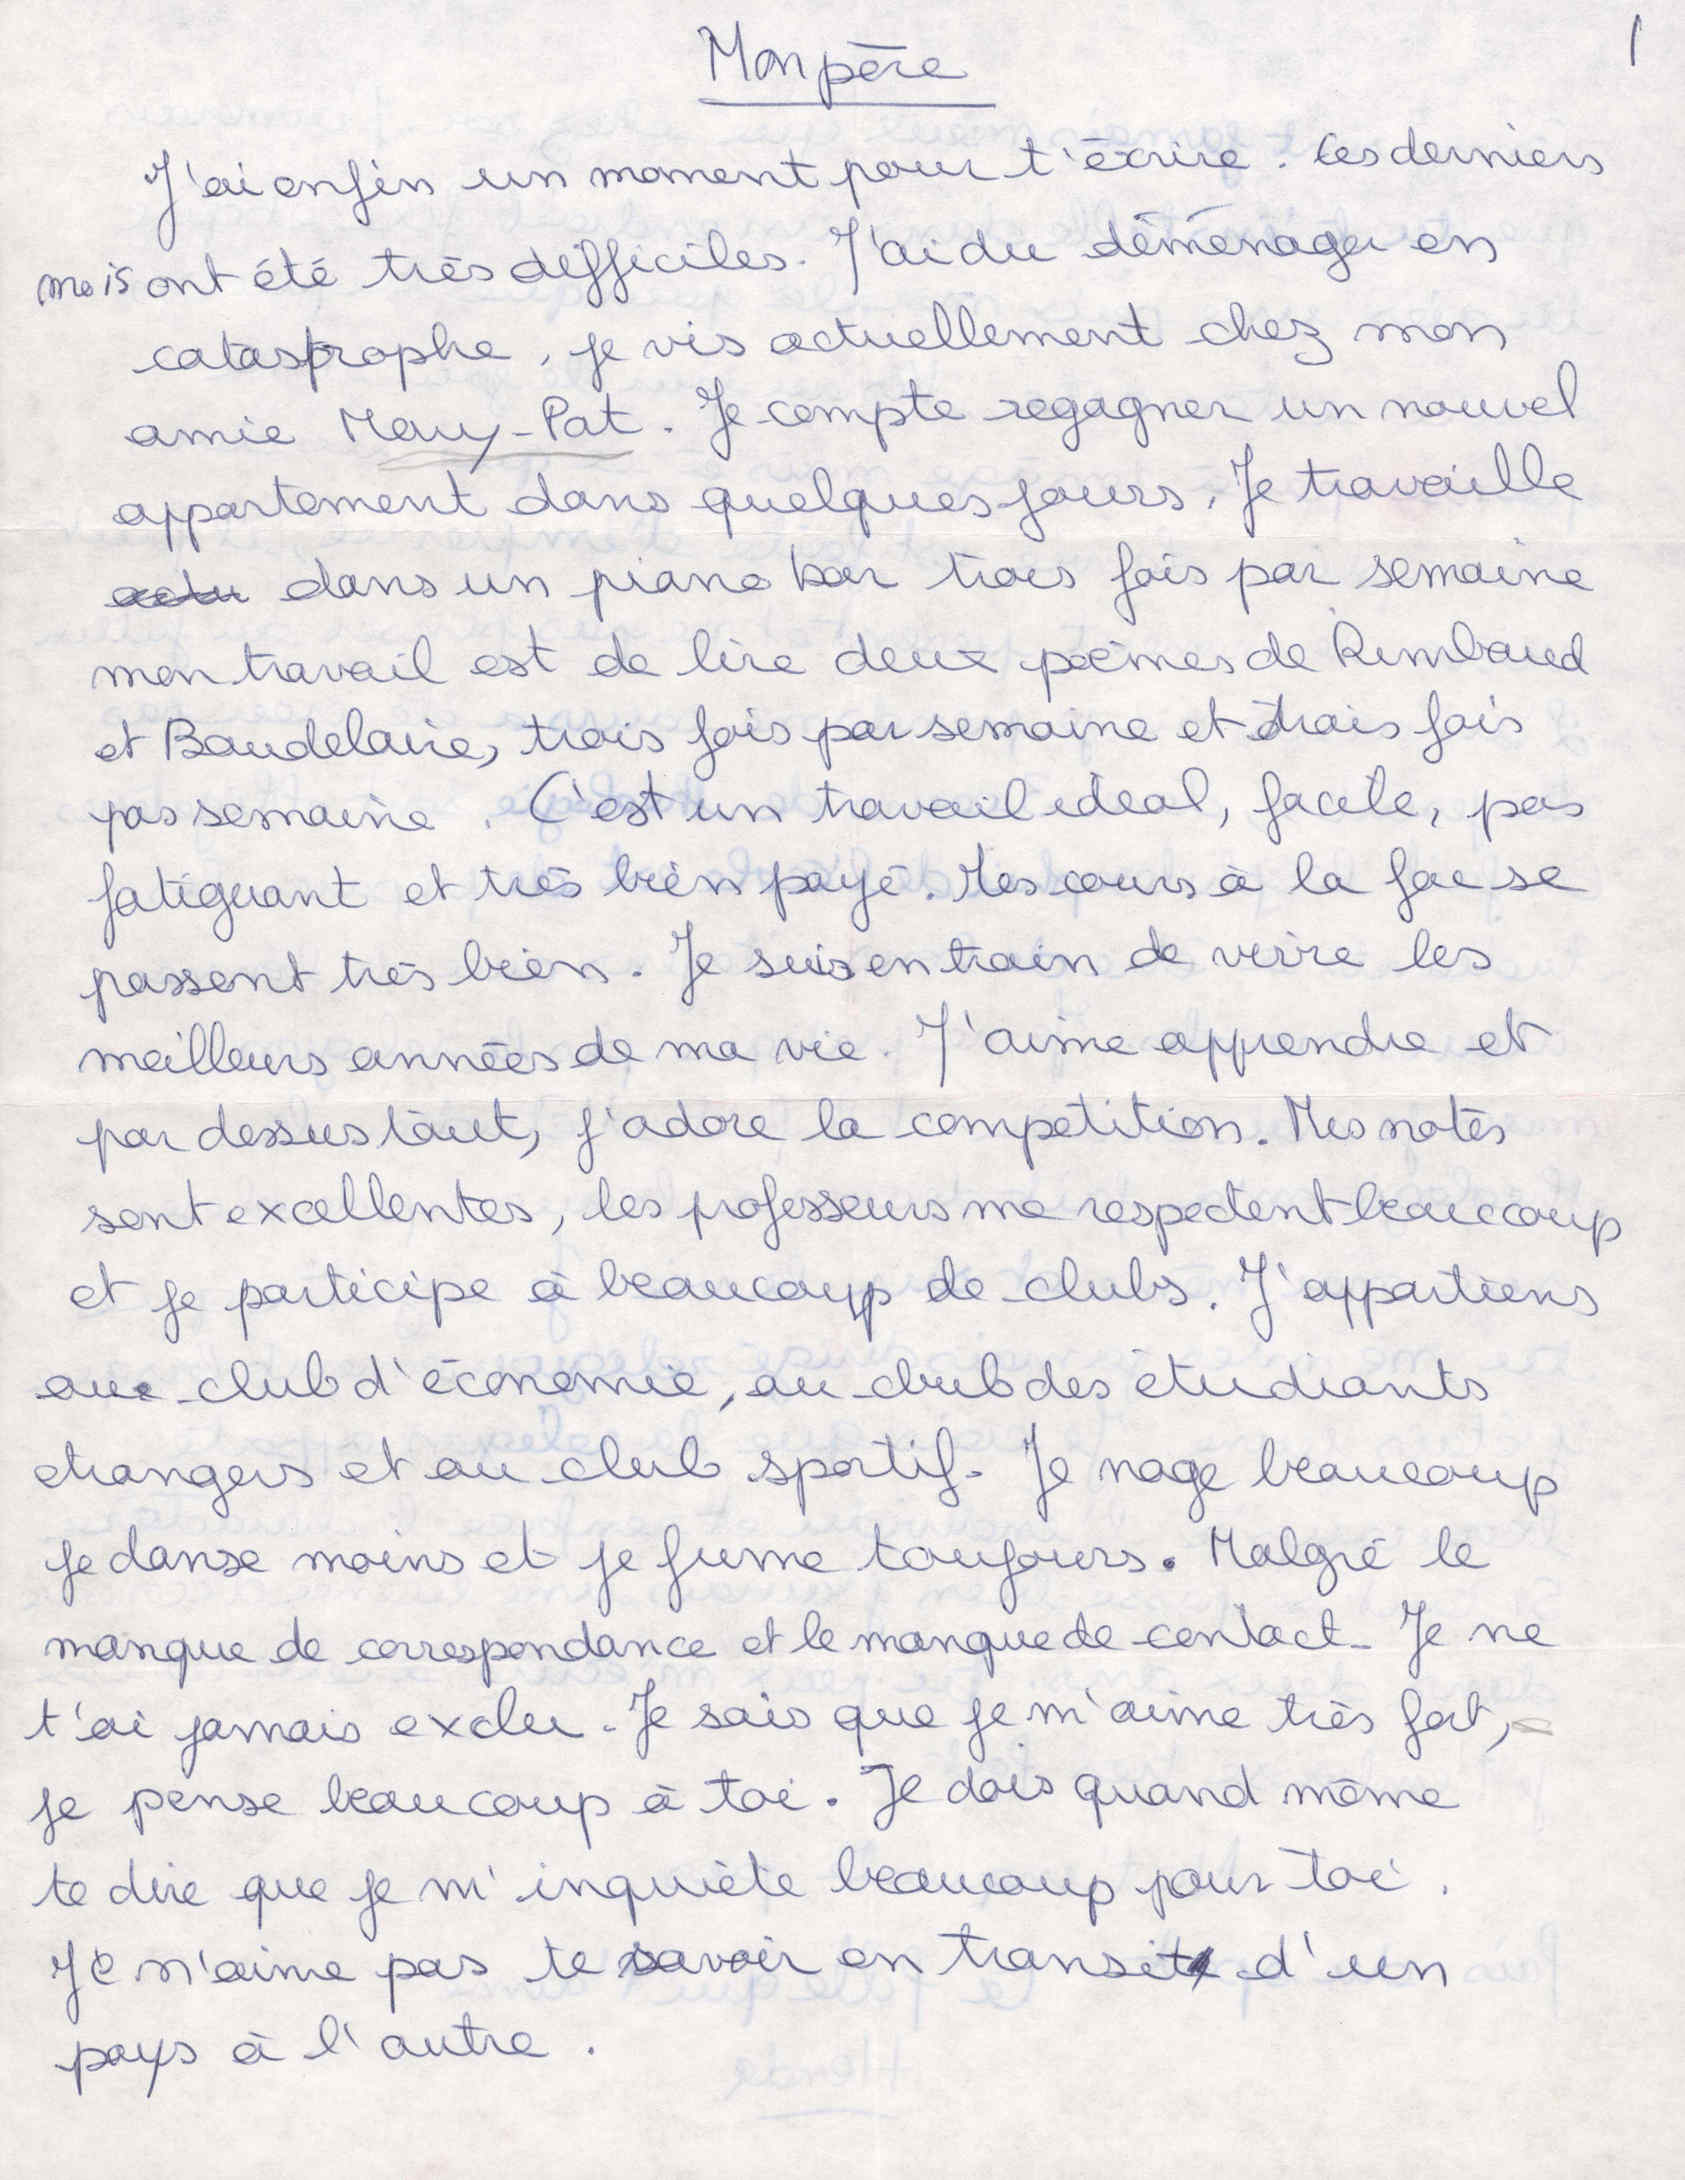 1
Mon père
J'ai enfin un moment pour t'écrire. Ces derniers
mois ont été très difficiles. J'ai du déménager en
catastrophe, je vis actuellement chez mon
amie Mary-Pat. Je compte regagner un nouvel
appartement dans quelques jours. Je travaille
dans un piano bar trois fois par semaine
mon travail est de lire deux poèmes de Rimbaud
et Baudelaire, trois fois par semaine et trois fois
pas semaine. C'est un travail idéal, facile, pas
fatiguant et très bien payé. Mes cours à la fac se
passent très bien. Je suis en train de vivre les
meilleurs années de ma vie. J'aime apprendre et
par dessus tout, j'adore la compétition. Mes notes
sont excellentes, les professeurs me respectent beaucoup
et je participe à beaucoup de clubs. J'appartiens
au club d'économie, au club des étudiants
etrangers et au club sportif. Je nage beaucoup
je danse moins et je fume toujours. Malgré le
manque de correspondance et le manque de contact. Je ne
t'ai jamais exclu. Je sais que je m'aime très fort,
je pense beaucoup à toi. Je dois quand même
te dire que je m'inquiète beaucoup pour toi.
Je n'aime pas te savoir en transit d'un
pays à l'autre.